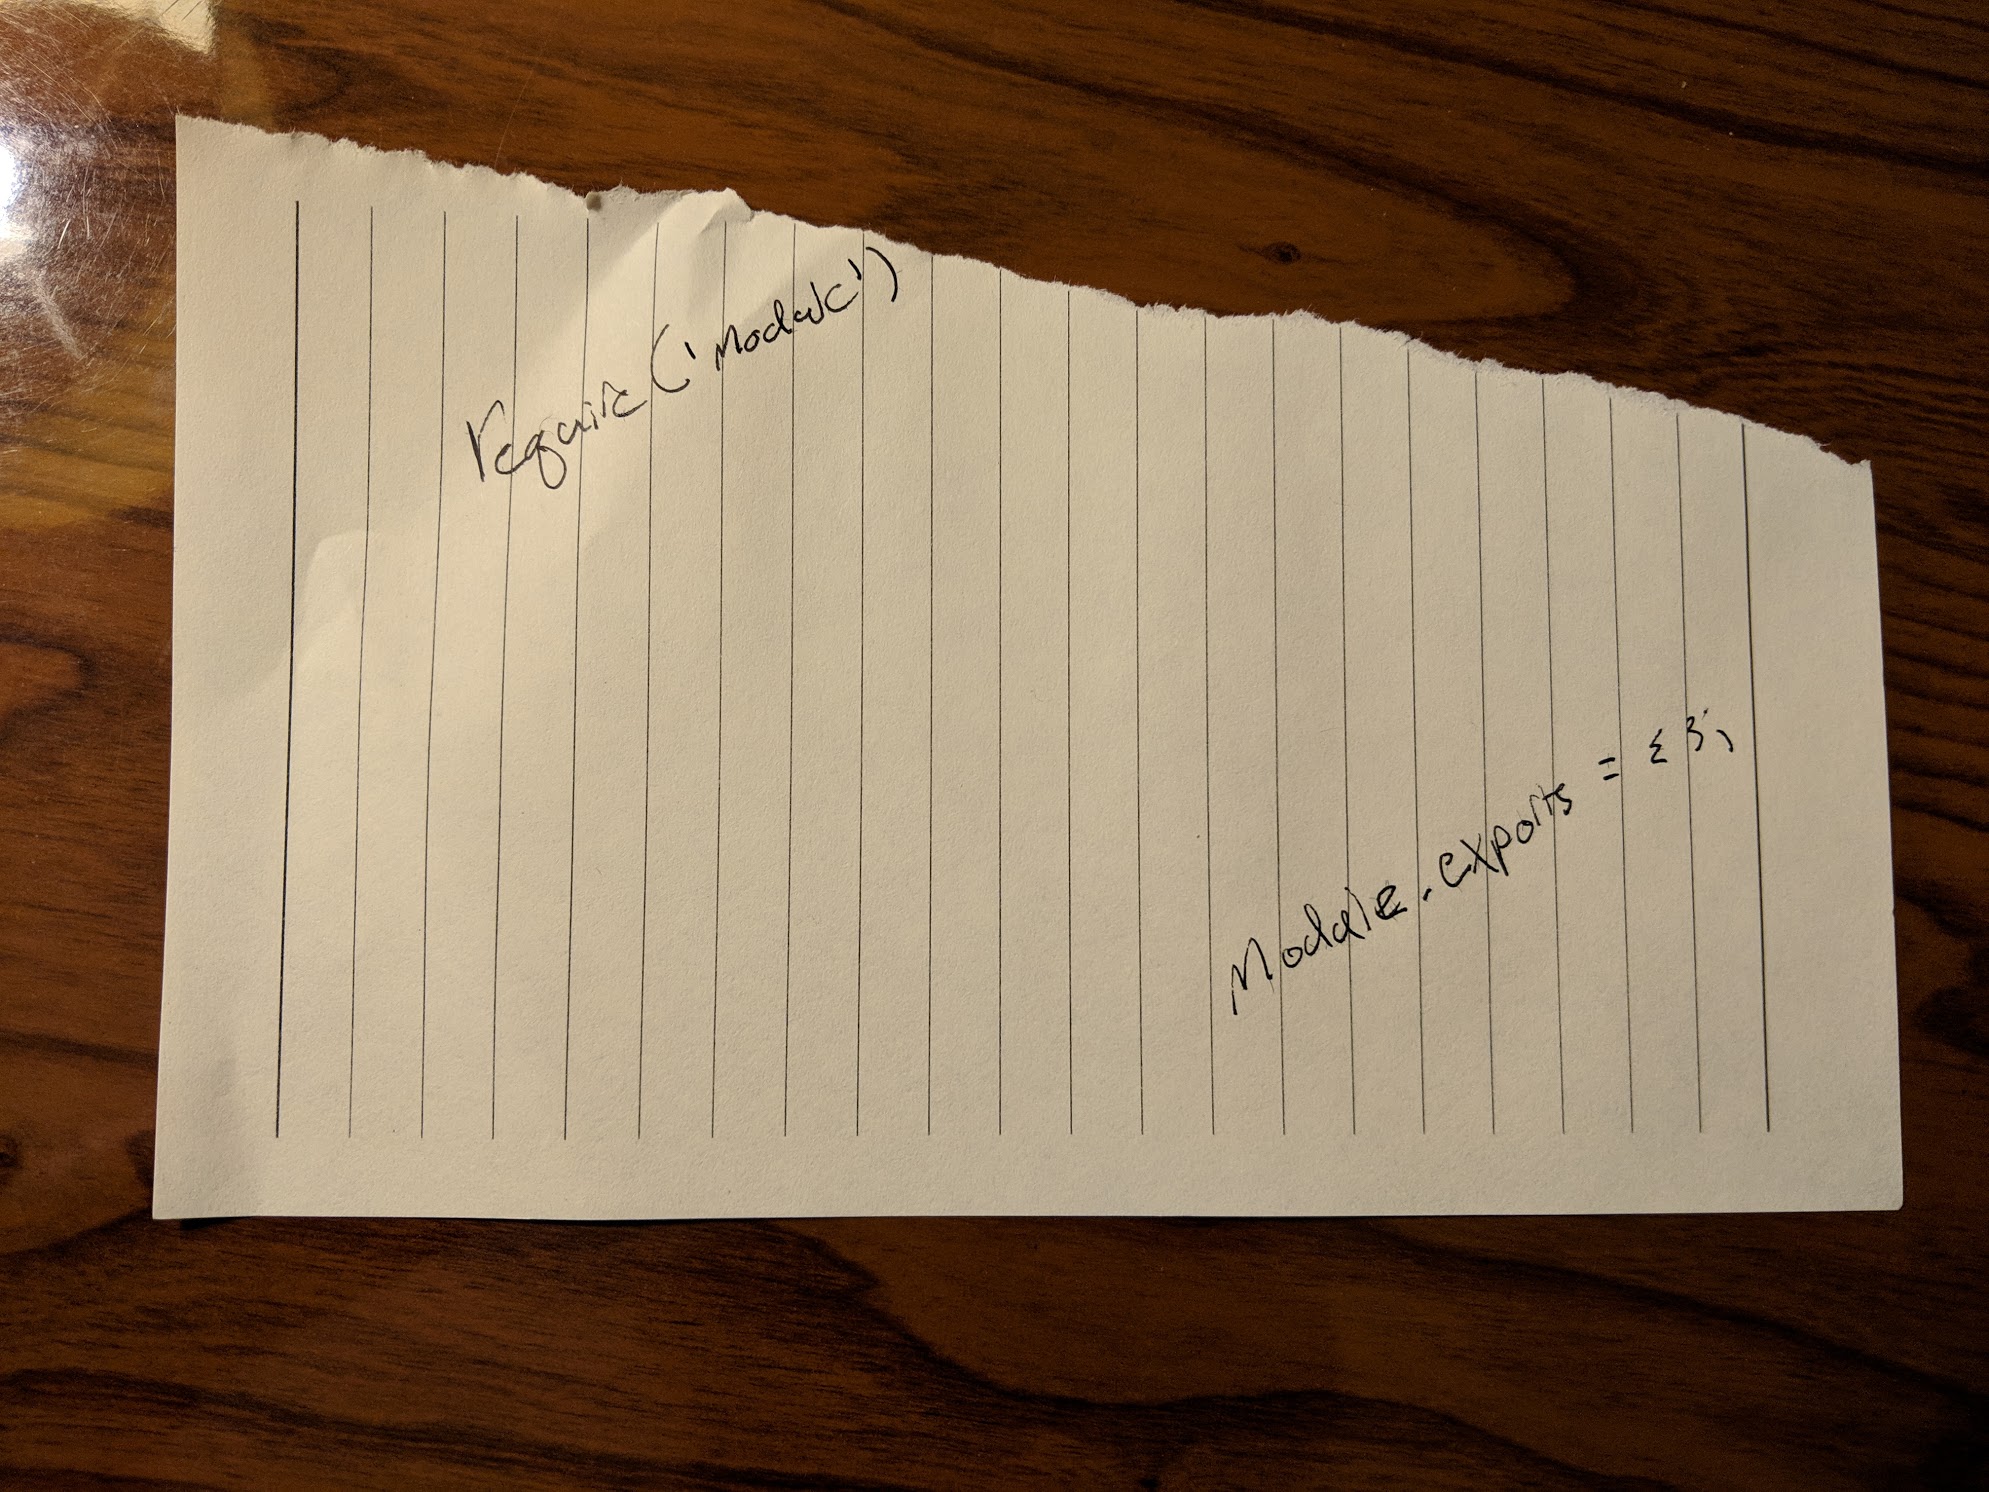 require('module')
module.exports = {};